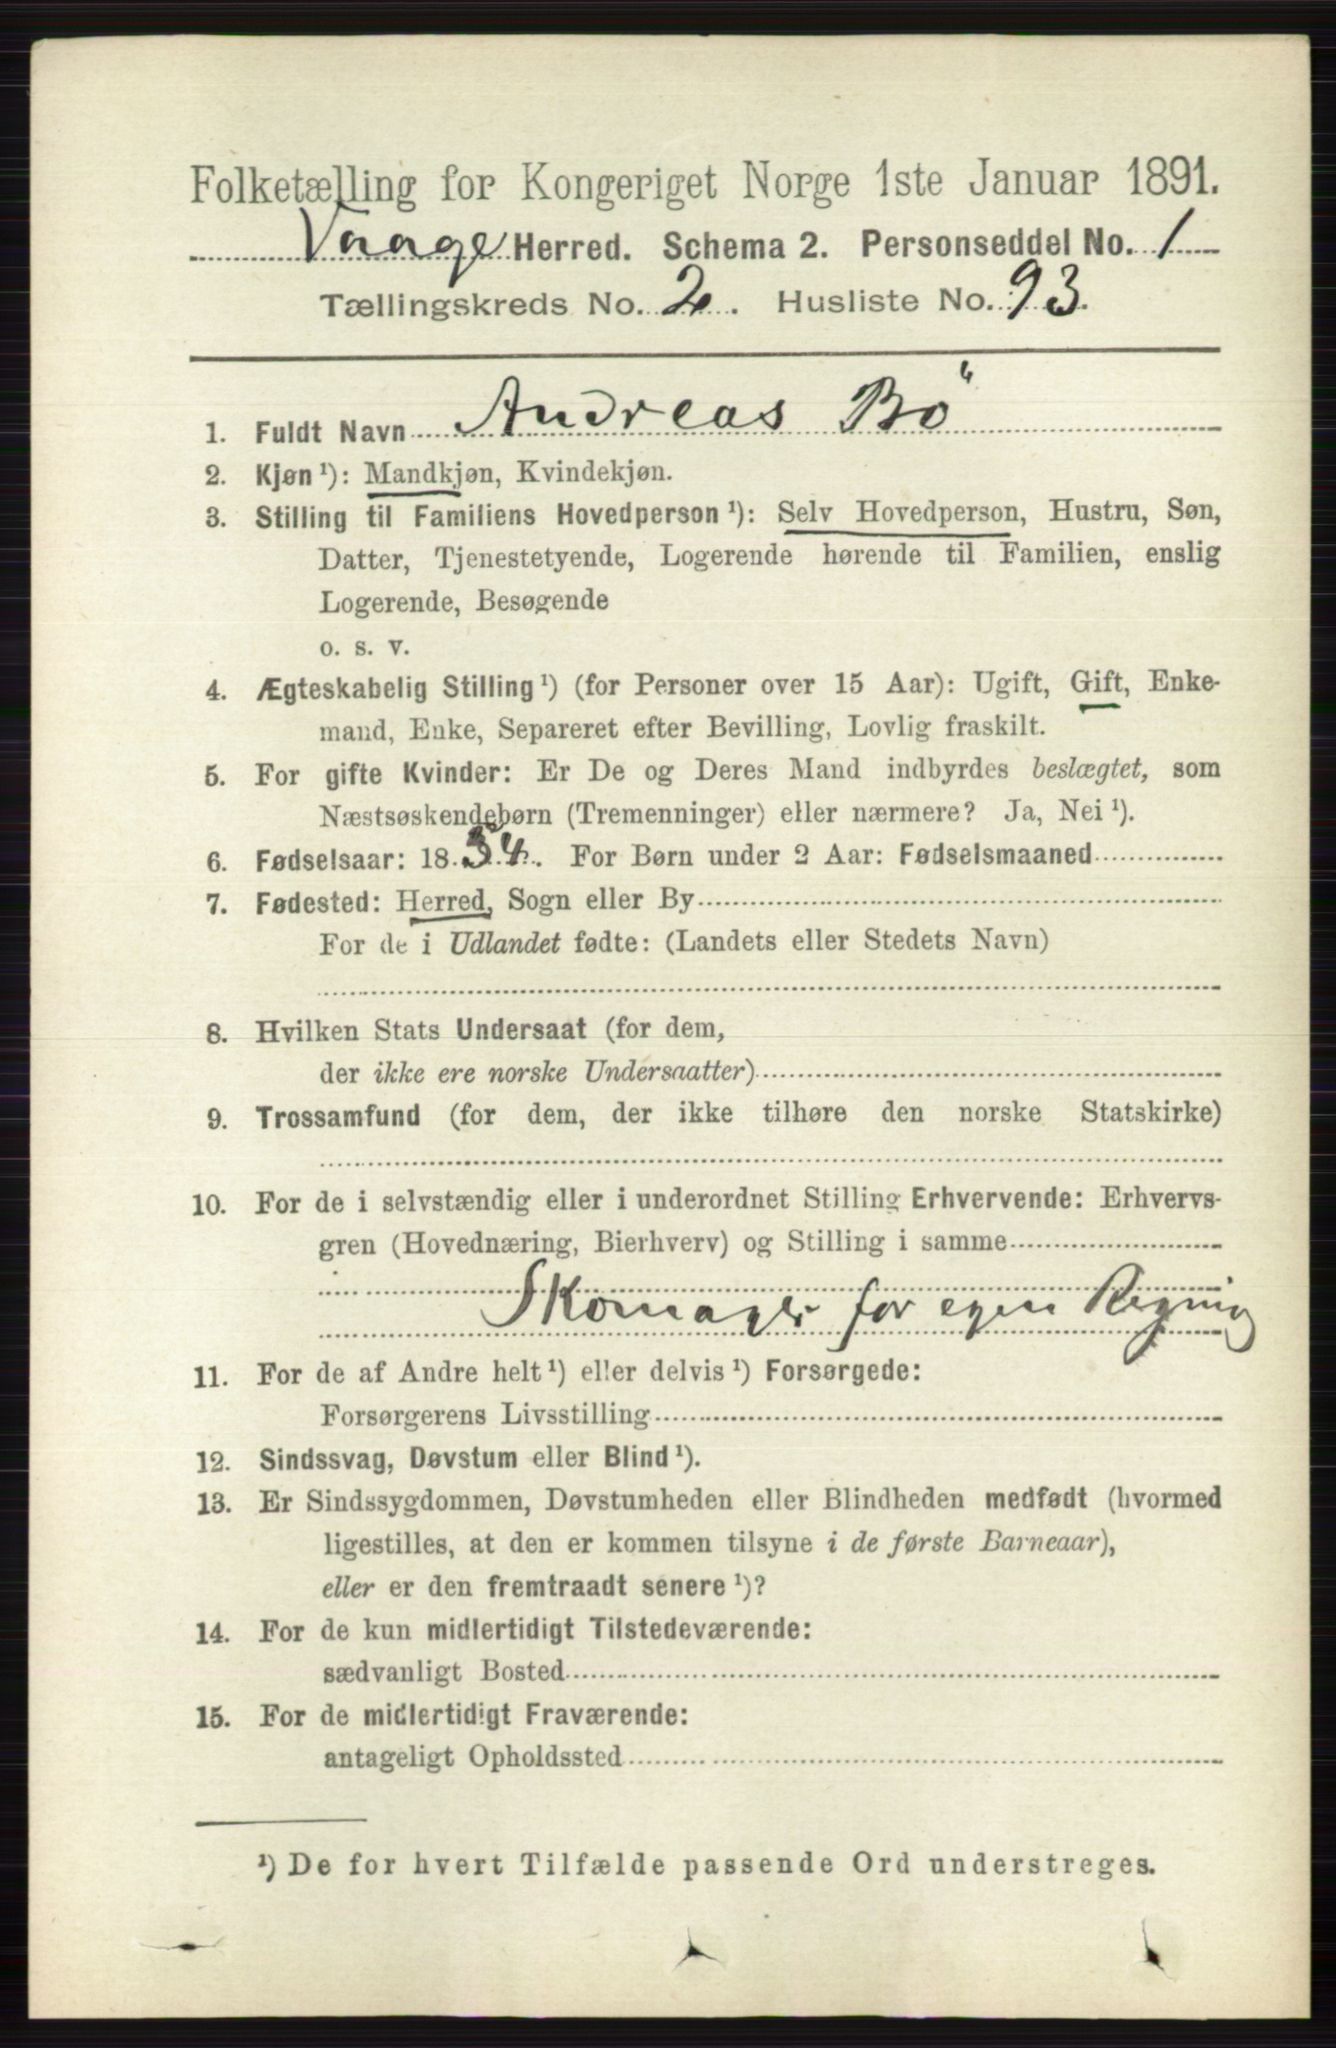 Folketælling for Kongeriget Norge 1ste Januar 1891.
Vaage Herred. Schema 2. Personseddel No. 1
Tællingskreds No. 2. Husliste No. 93.
1. Fuldt Navn Andreas Bö
2. Kjøn ¹): Mandkjøn, Kvindekjøn.
3. Stilling til Familiens Hovedperson ¹): Selv Hovedperson, Hustru, Søn,
Datter, Tjenestetyende, Logerende hørende til Familien, enslig
Logerende, Besøgende
o. s. v.
4. Ægteskabelig Stilling ¹) (for Personer over 15 Aar): Ugift, Gift, Enke-
mand, Enke, Separeret efter Bevilling, Lovlig fraskilt.
5. For gifte Kvinder: Er De og Deres Mand indbyrdes beslægtet, som
Næstsøskendebørn (Tremenninger) eller nærmere? Ja, Nei ¹).
6. Fødselsaar: 1854. For Børn under 2 Aar: Fødselsmaaned
7. Fødested: Herred, Sogn eller By
For de i Udlandet fødte: (Landets eller Stedets Navn)
8. Hvilken Stats Undersaat (for dem,
der ikke ere norske Undersaatter)
9. Trossamfund (for dem, der ikke tilhøre den norske Statskirke)
10. For de i selvstændig eller i underordnet Stilling Erhvervende: Erhvervs-
gren (Hovednæring, Bierhverv) og Stilling i samme
Skomager for egen Regning
11. For de af Andre helt ¹) eller delvis ¹) Forsørgede:
Forsørgerens Livsstilling
12. Sindssvag, Døvstum eller Blind ¹).
13. Er Sindssygdommen, Døvstumheden eller Blindheden medfødt (hvormed
ligestilles, at den er kommen tilsyne i de første Barneaar),
eller er den fremtraadt senere ¹)?
14. For de kun midlertidigt Tilstedeværende:
sædvanligt Bosted
15. For de midlertidigt Fraværende:
antageligt Opholdssted
¹) De for hvert Tilfælde passende Ord understreges.